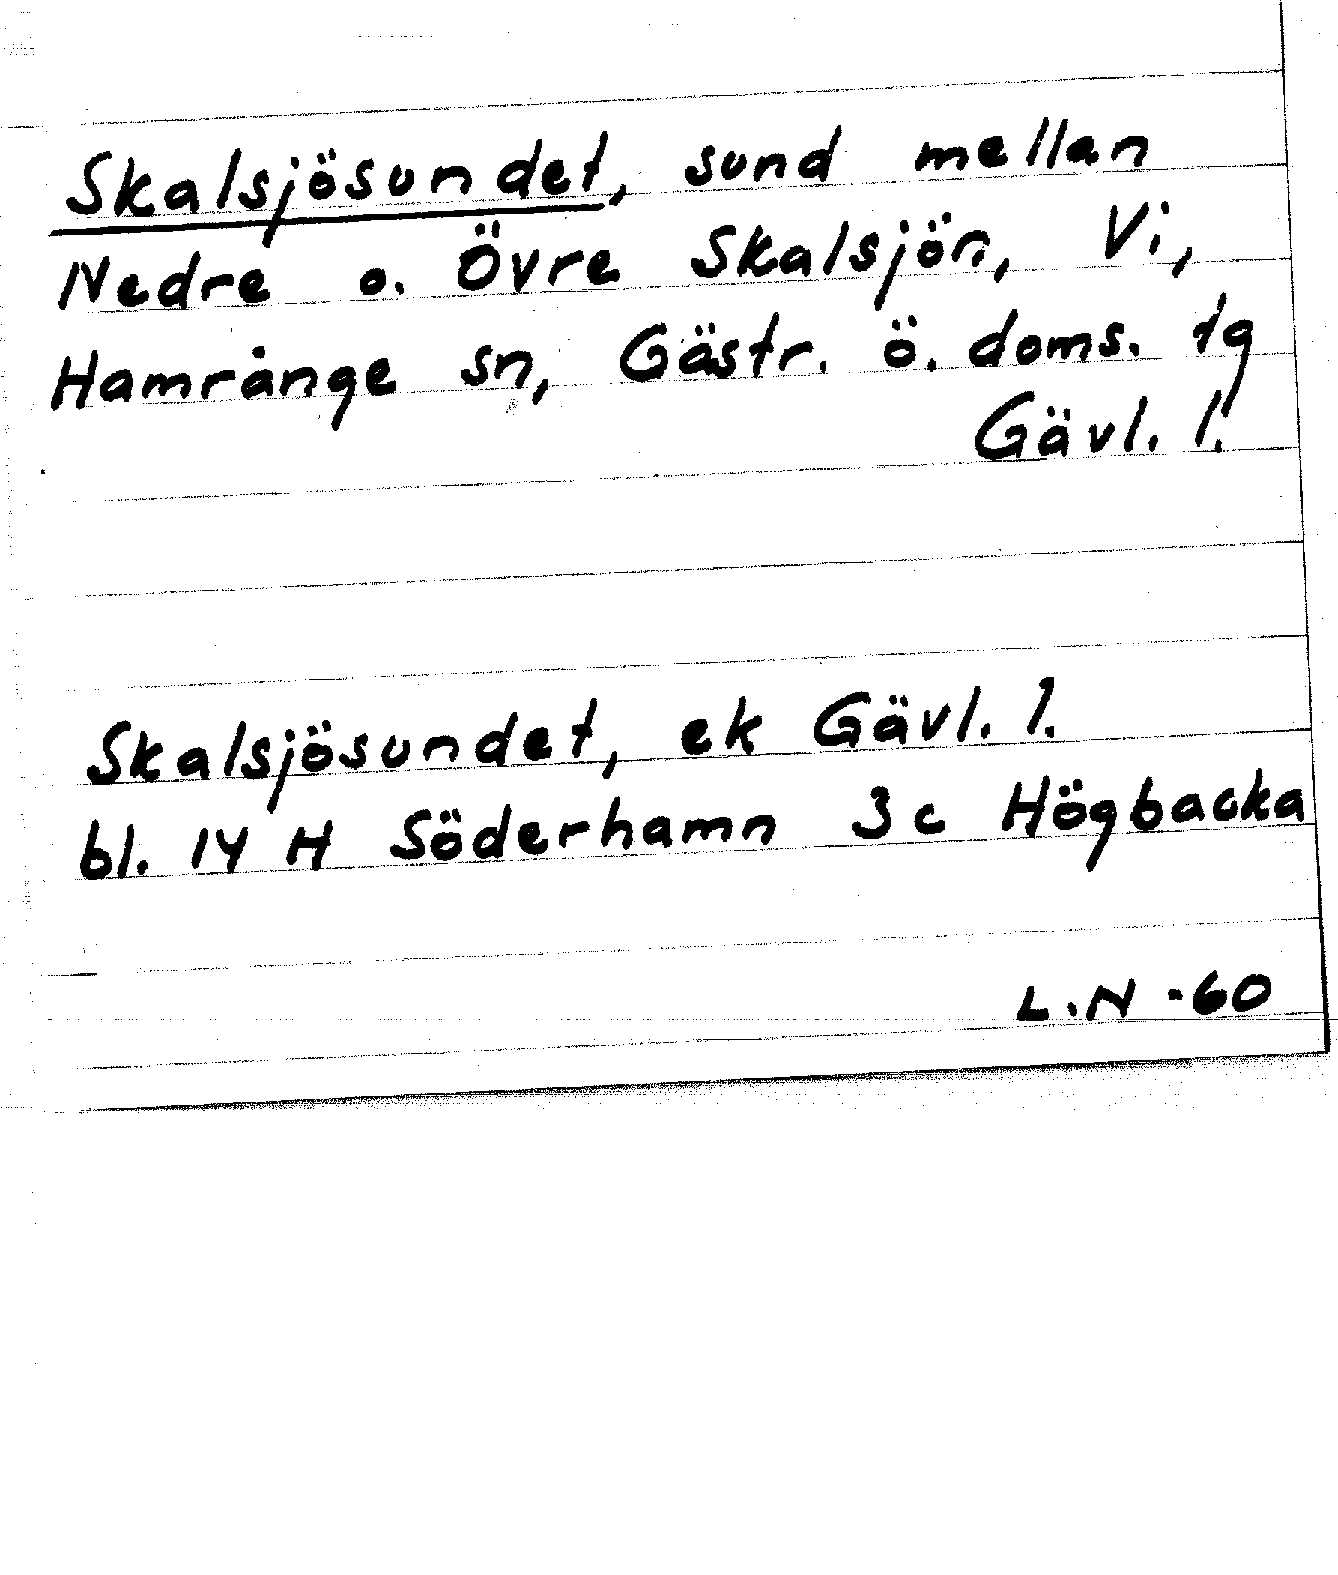 Skalsjösundet, sund mellan
Nedre o. Övre Skalsjön, Vi,
Hamrånge sn, Gästr. ö. doms. tg
Gävl. l.
Skalsjösundet, ek Gävl. l.
bl. 14 H Söderhamn 3c Högbacka
L.N -60